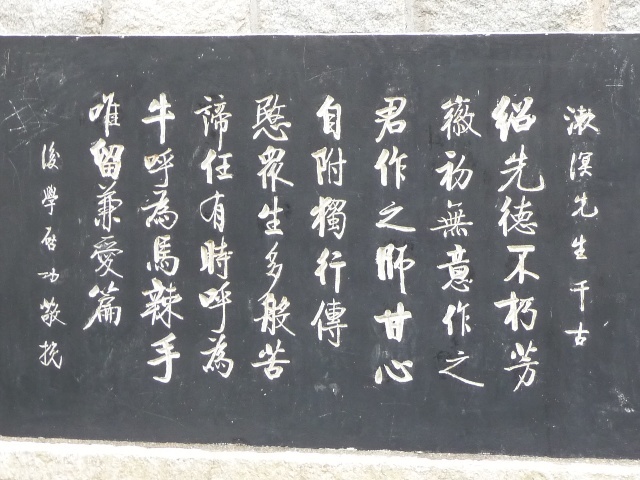 漱溟先生千古
紹先德不朽芳
徽初無意作之
君作之師甘心
自附獨行傳
愍眾生多般苦
諦任有時呼為
牛呼為馬辣手
唯留兼愛篇
後學啟功敬挽